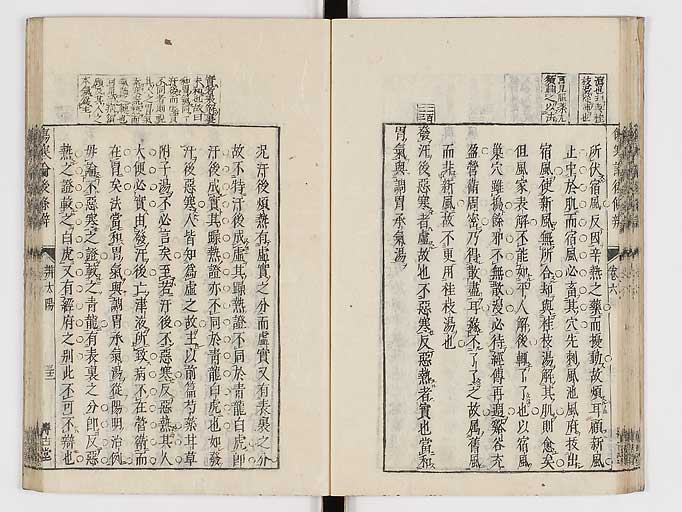 傷寒論後條辨
卷六
所伏宿風反因辛熱之藥而擾動故煩耳顧新風
止中於肌而宿風必畜其穴先刺風池風府拔出
宿風使新風無所合却與桂枝湯解其肌則愈矣
但風家表解不能如平人解後輒了了也以宿風
巢穴雖搗餘邪不無散漫必待經傳再週谿谷充
盈營衞周密乃得散盡耳蓋不了了之故屬舊風
而非新風故不更用桂枝湯也
發汗後惡寒者虛故也不惡寒反惡熱者實也當和
胃氣與調胃承氣湯
況汗後煩熱有虛實之分而虛實又有表裏之分
故不特汗後成虛其躁熱證不同於青龍白虎卽
汗後成實其躁熱證亦不同於青龍白虎也如發
汗後惡寒人皆知爲虛之故主以前篇芍藥甘草
附子湯不必言矣至若汗後不惡寒反惡熱其人
大便必實由發汗後亡津液所致病不在營衞而
在胃矣法當和胃氣與調胃承氣湯從陽明治例
毋論不惡寒之證較之青龍有表裏之分卽反惡
熱之證較之白虎又有經府之別此不可不辨也
傷寒論後條辨
辨太陽